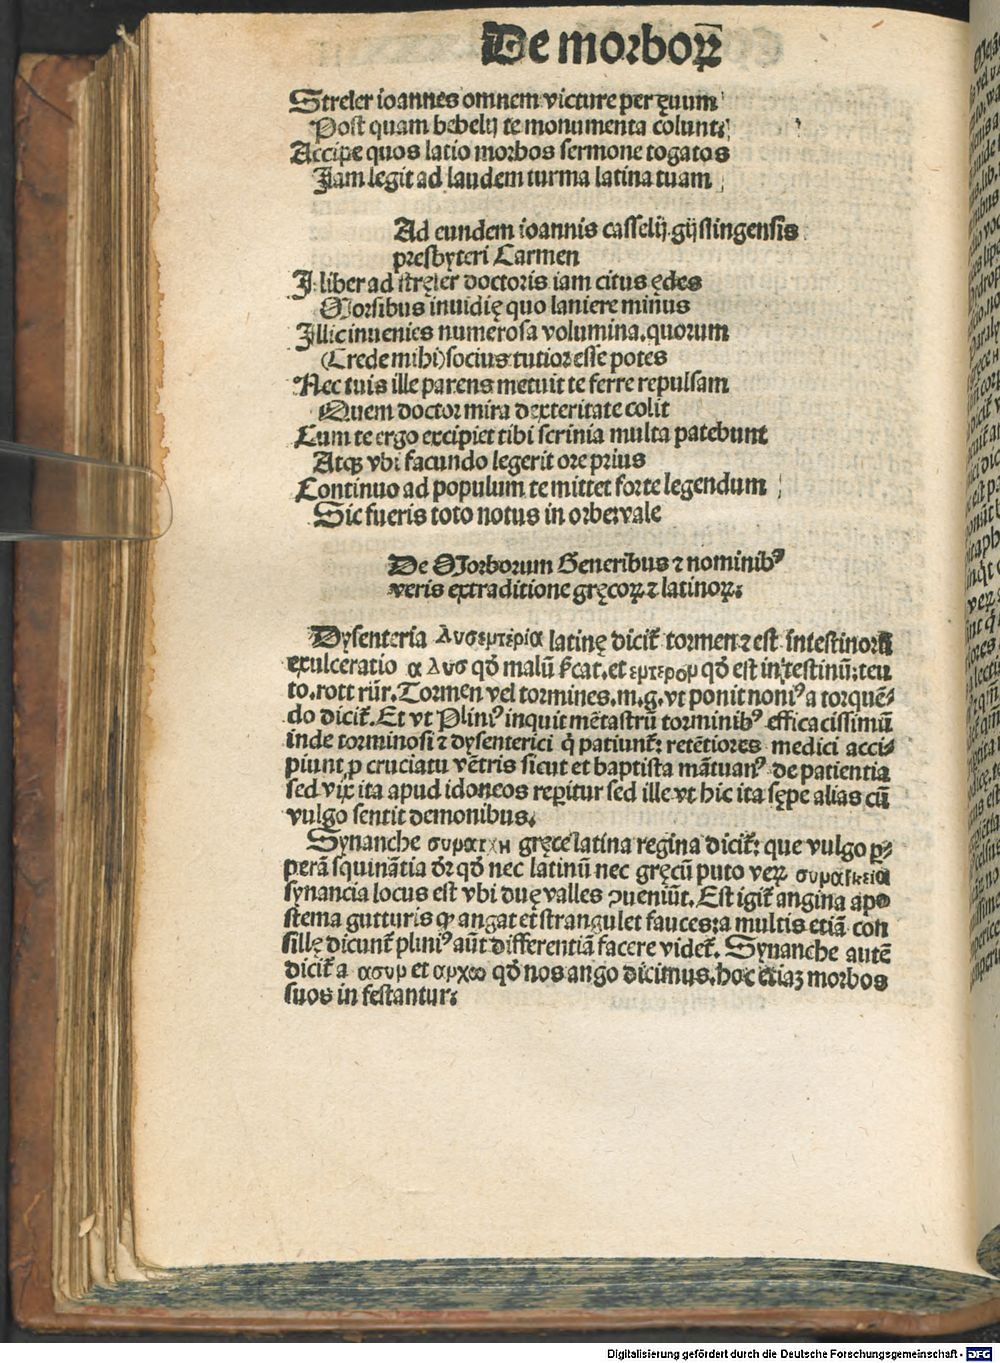 De morboꝝ
Streler ioannes omnem victure per ęuum
Post quam bebelij te monumenta colunt:
Accipe quos latio morbos sermone togatos
Jam legit ad laudem turma latina tuam
Ad eundem ioannis casselij gijslingensis
presbyteri Carmen
I liber ad stręler doctoris iam citus ędes
Morsibus inuidię quo laniere minus
Illic inuenies numerosa volumina, quorum
(Crede mihi) socius tutior esse potes
Nec tuis ille parens metuit te ferre repulsam
Quem doctor mira dexteritate colit
Cum te ergo excipiet tibi scrinia multa patebunt
Atqꝫ vbi facundo legerit ore prius
Continuo ad populum te mittet forte legendum
Sic fueris toto notus in orbe: vale
De Morborum Generibus ⁊ nominibꝰ
veris ex traditione gręcoꝝ ⁊ latinoꝝ:
Dysenteria latinę dicit᷑ tormen ⁊ est intestinorū
exulceratio α λυσ qđ malū ſcat, et qđ est intestinū: teu
to. rott rür. Tormen vel tormines. m. g. vt ponit noniꝰ a torquē⸗
do dicit᷑. Et vt Pliniꝰ inquit mētastrū torminibꝰ efficacissimū
inde torminosi ⁊ dysenterici q̇ patiunt᷑: retētiores medici acci⸗
piunt ꝓ cruciatu vētris sicut et baptista mātuanꝰ de patientia
sed vix ita apud idoneos reꝑitur sed ille vt hic ita sępe alias cū
vulgo sentit demonibus.
Synanche gręce latina regina dicit᷑: que vulgo ꝑ⸗
perā squinātia dr̄ qđ nec latinū nec gręcū puto veꝝ
synancia locus est vbi duę valles ꝯueniūt. Est igit᷑ angina apo
stema gutturis ꝙ angat et strangulet fauces: a multis etiā con
sillę dicunt᷑ pliniꝰ aūt differentiā facere videt᷑. Synanche autē
dicit᷑ a et qđ nos ango dicimus. hoc etiaꝫ morbos
suos in festantur:
Digitalisierung gefördert durch die Deutsche Forschungsgemeinschaft - DFG